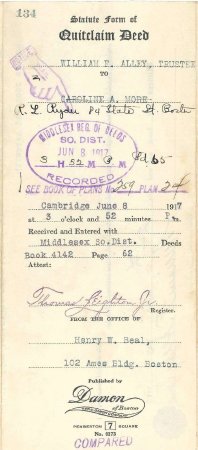 134
Statute Form of
Quitclaim Deed
WILLIAM E. ALLEY, TRUSTEE
TO
CAROLINE A. MORE
R. L. Ryder 84 State St. Boston
MIDDLESEX REG. OF DEEDS
SO. DIST.
JUN 8 1917
3 H 52 M P M
RECORDED
SEE BOOK OF PLANS No 259, PLAN 24
Cambridge June 8 1917
at 3 o'clock and 52 minutes P. M.
Received and Entered with
Middlesex So.Dist. Deeds
Book 4142 Page 62
Attest:
Thomas Leighton Jr.
Register.
FROM THE OFFICE OF
Henry W. Beal,
102 Ames Bldg. Boston
Published by
Damon
of Boston
PEMBERTON 7 SQUARE
No. 0373
COMPARED